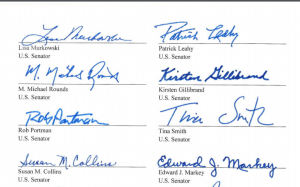 Lisa Murkowski
Lisa Murkowski
U.S. Senator
Patrick Leahy
Patrick Leahy
U.S. Senator
M. Michael Rounds
M. Michael Rounds
U.S. Senator
Kirsten Gillibrand
Kirsten Gillibrand
U.S. Senator
Rob Portman
Rob Portman
U.S. Senator
Tina Smith
Tina Smith
U.S. Senator
Susan M. Collins
Susan M. Collins
U.S. Senator
Edward J. Markey
Edward J. Markey
U.S. Senator